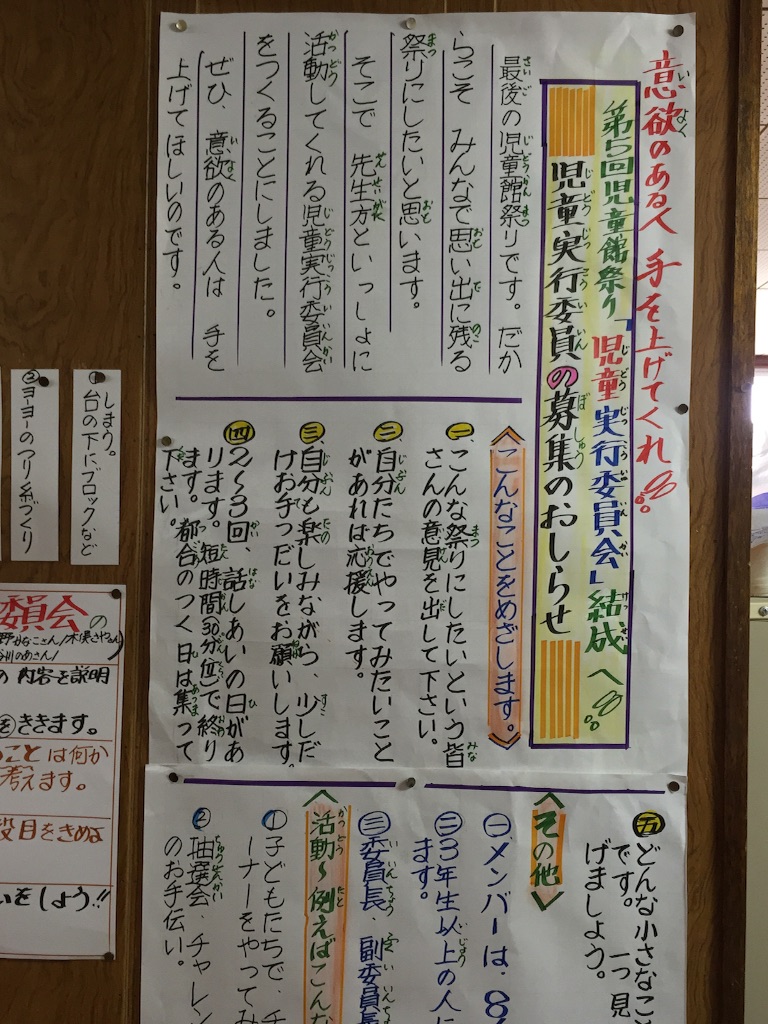 意欲のある人 手を上げてくれ
第5回児童館祭り「児童実行委員会」結成へ
児童実行委員の募集のおしらせ
最後の児童館祭りです。だか
らこそ みんなで思い出に残る
祭りにしたいと思います。
そこで 先生方といっしょに
活動してくれる児童実行委員会
をつくることにしました。
ぜひ、意欲のある人は 手を
上げてほしいのです。
〈こんなことをめざします。〉
一、こんな祭りにしたいという皆
さんの意見を出して下さい。
二、自分たちでやってみたいこと
があれば応援します。
三、自分も楽しみながら、少しだ
けお手つだいをお願いします。
四、2〜3回、話しあいの日があ
ります。短時間30分位で終り
ます。都合のつく日は集って
下さい。
五、どんな小さなこ
です。一つ見
げましょう。
〈その他〉
一、メンバーは、8
二、3年生以上の人に
ます。
三、委員長、副委員長
〈活動〜例えばこんな
①子どもたちで、チ
ーナーをやってみ
②抽選会、チャレン
のお手伝い。
①台の下にブロックなど
しまう。
②ヨーヨーのつり糸づくり
委員会の
の内容を説明
をききます。
ことは何か
考えます。
役目をきめよ
いをしよう!!